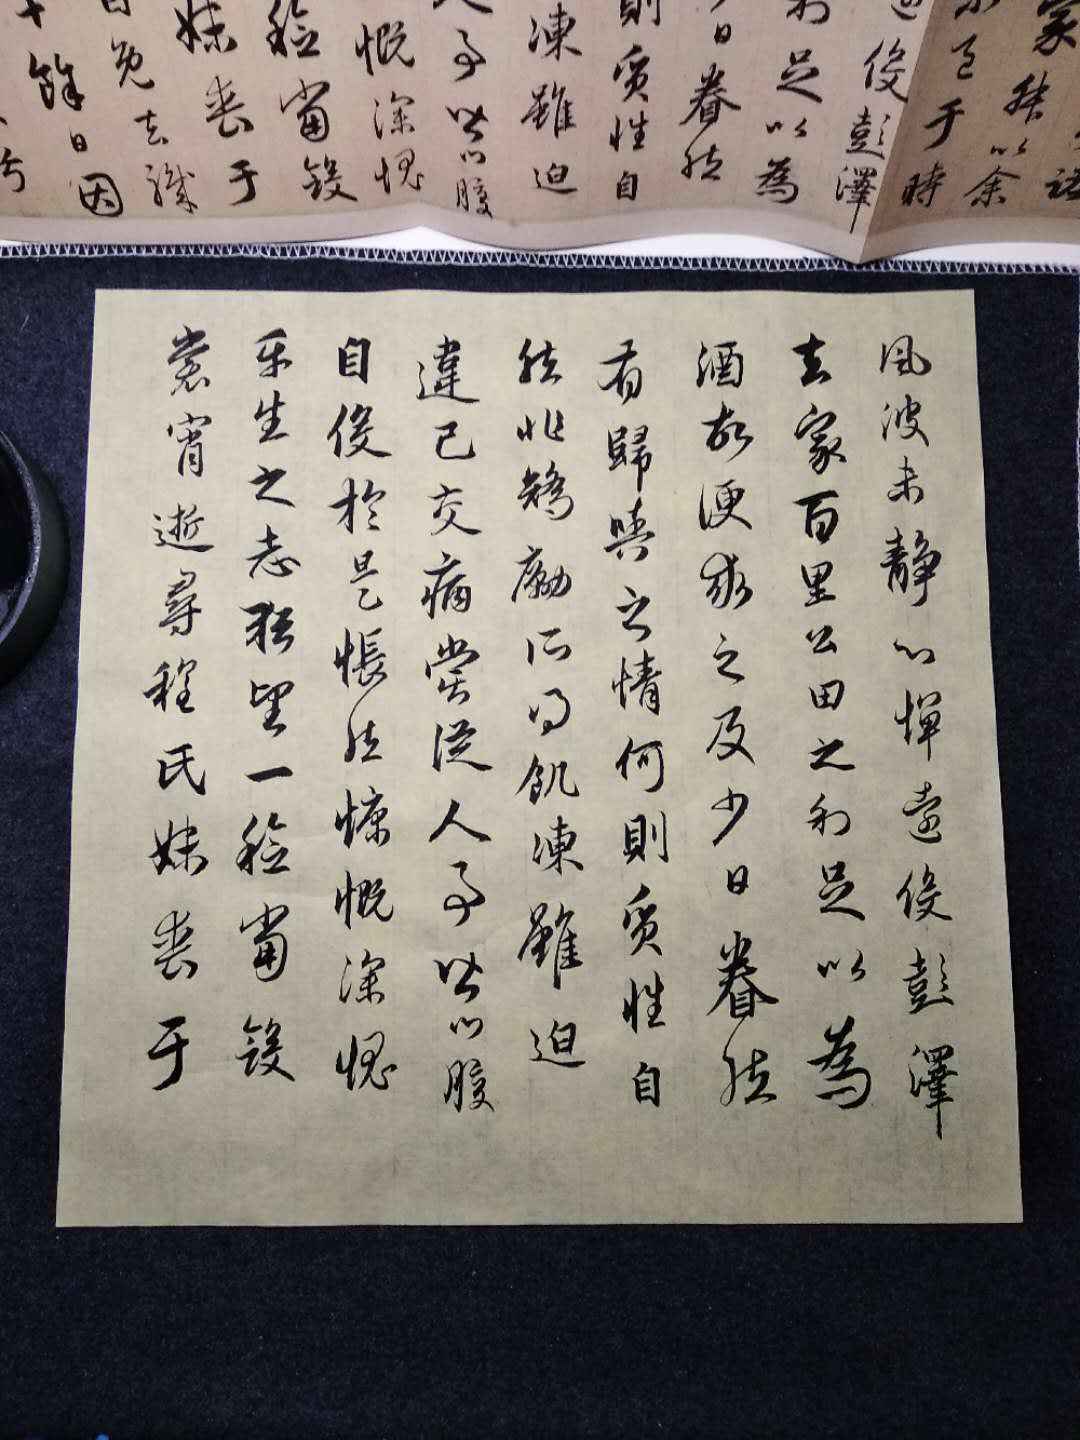 家叔以余
邑于時
役彭澤
利足以為
少日眷然
則質性自
凍雖迫
人事皆口腹
慨深愧
稔當斂
妹喪于
自免去職
十餘日因
風波未靜心憚遠役彭澤
去家百里公田之利足以為
酒故便求之及少日眷然
有歸與之情何則質性自
然非矯勵所得飢凍雖迫
違己交病嘗從人事皆口腹
自役於是悵然慷慨深愧
平生之志猶望一稔當斂
裳宵逝尋程氏妹喪于